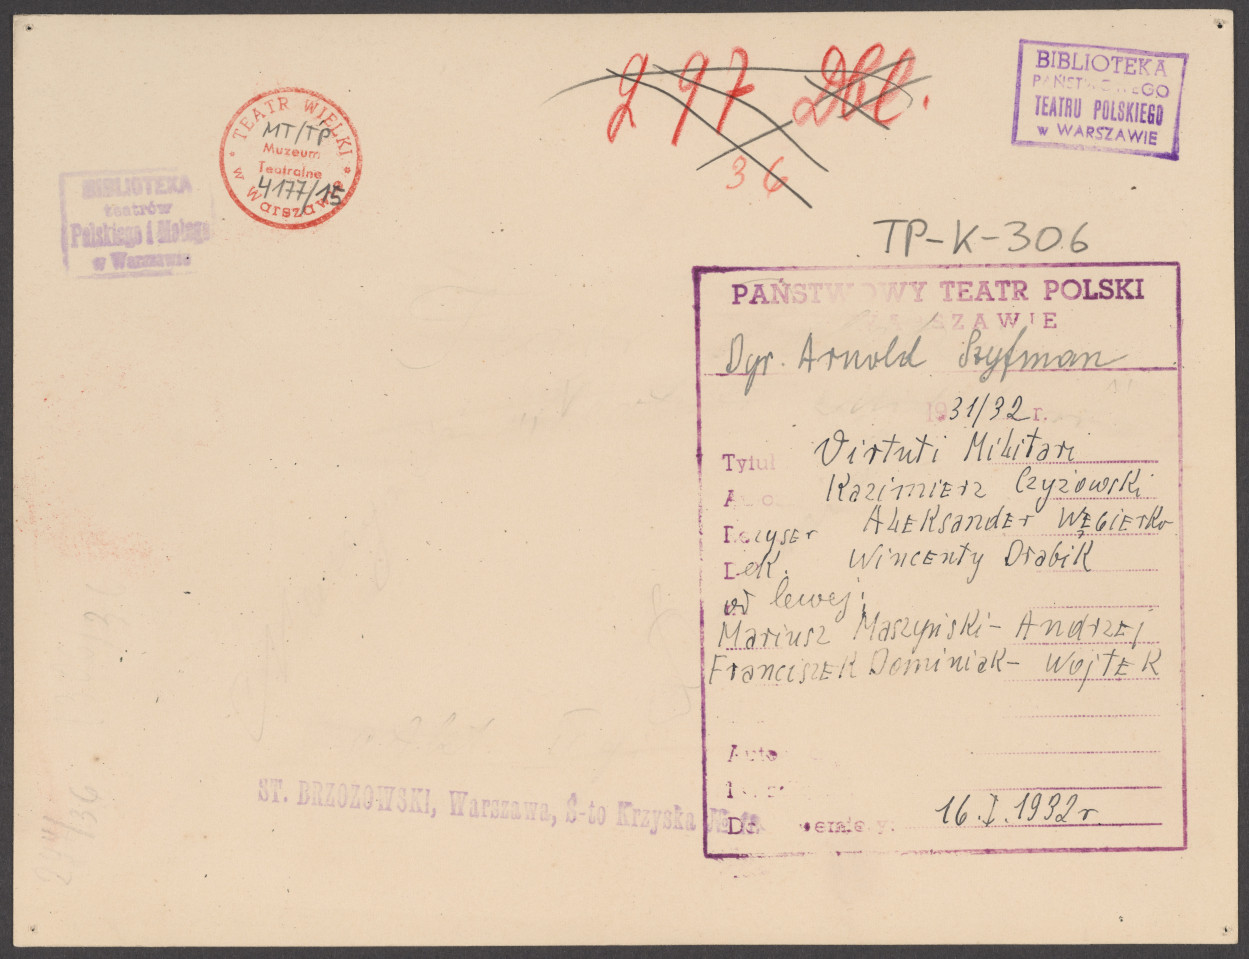 297 Dbl.
36
BIBLIOTEKA
PAŃSTWOWEGO
TEATRU POLSKIEGO
w WARSZAWIE
TEATR WIELKI
MT/TP
Muzeum
Teatralne
4177/15
w Warszawie
BIBLIOTEKA
teatrów
Polskiego i Małego
w Warszawie
TP-K-306
PAŃSTWOWY TEATR POLSKI
SZAWIE
Dyr. Arnold Szyfman
1931/32 r.
Tytuł Virtuti Militari
Kazimierz Czyżowski
Reżyser Aleksander Węgierko
Dek. Wincenty Drabik
od lewej:
Mariusz Maszyński - Andrzej
Franciszek Dominiak - Wojtek
ST. BRZOZOWSKI, Warszawa, Ś-to Krzyska
16.I.1932 r.